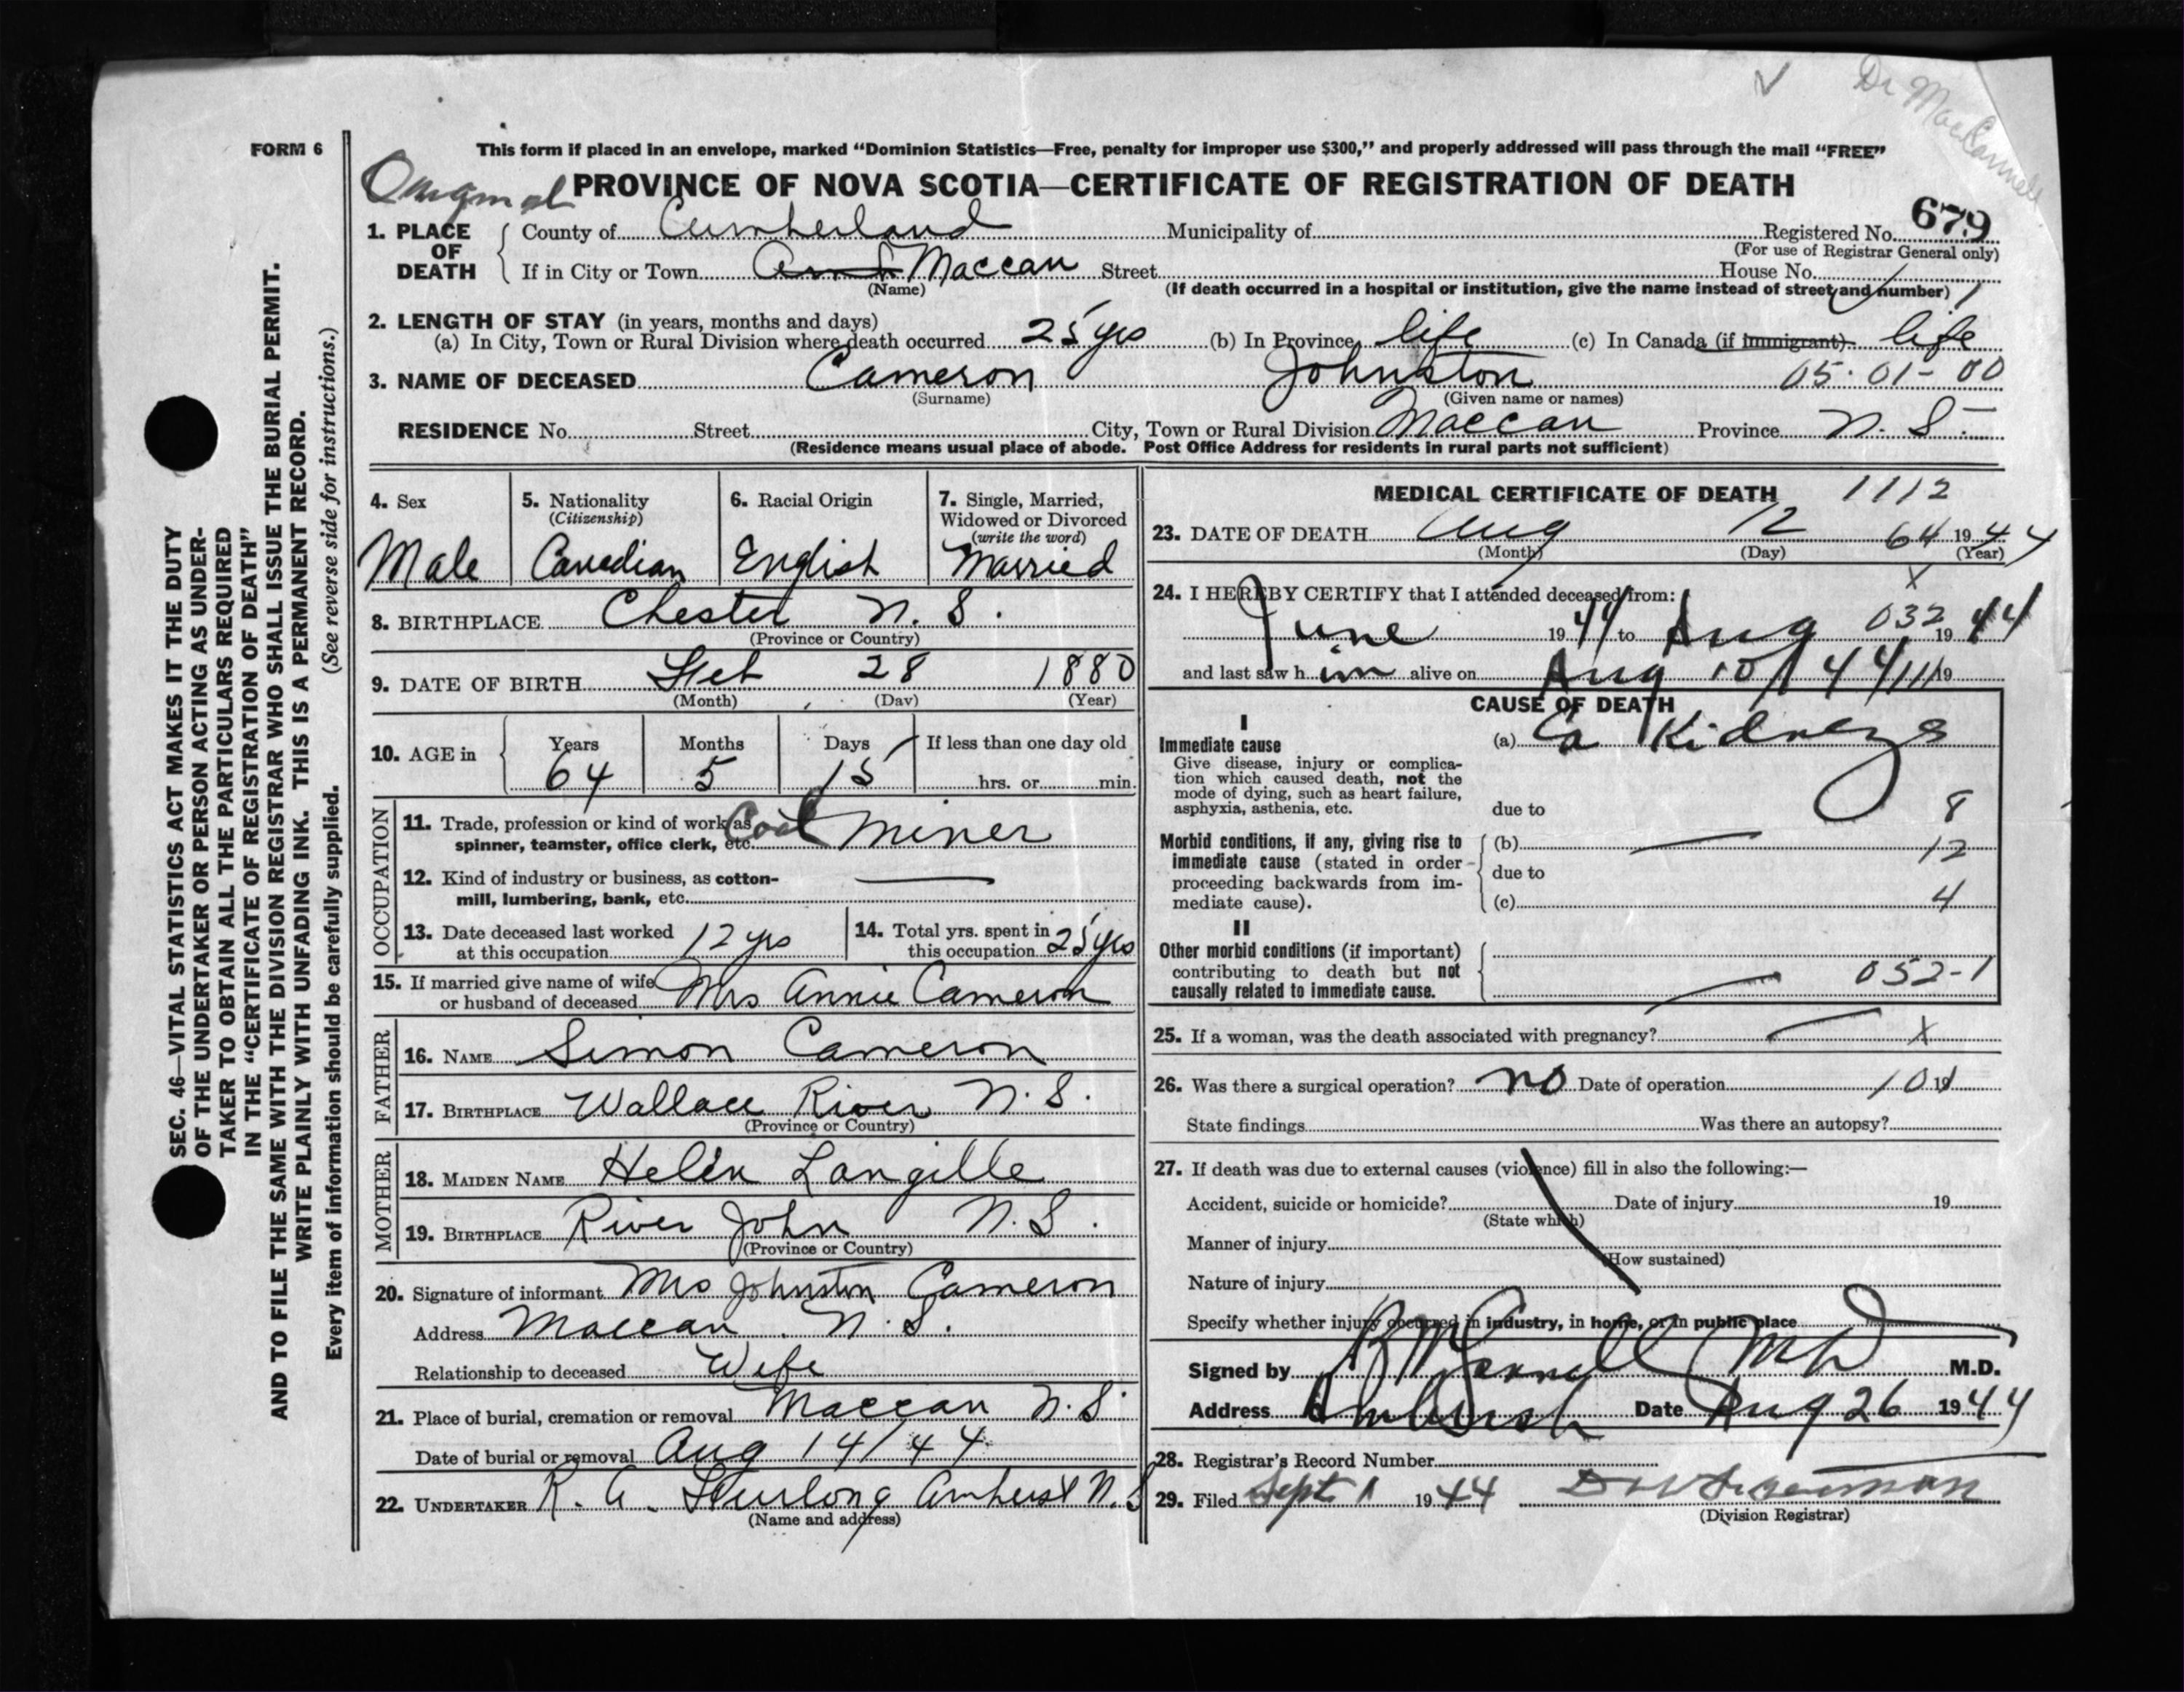 Dr MacConnell
FORM 6
This form if placed in an envelope, marked “Dominion Statistics—Free, penalty for improper use $300,” and properly addressed will pass through the mail “FREE”
Original PROVINCE OF NOVA SCOTIA—CERTIFICATE OF REGISTRATION OF DEATH
679
1. PLACE OF DEATH County of Cumberland Municipality of Registered No.
(For use of Registrar General only)
If in City or Town Maccan Street House No.
(Name) (If death occurred in a hospital or institution, give the name instead of street and number) 1
2. LENGTH OF STAY (in years, months and days)
(a) In City, Town or Rural Division where death occurred 25 yrs (b) In Province life (c) In Canada (if immigrant) life
3. NAME OF DECEASED Cameron Johnston 05-01-00
(Surname) (Given name or names)
RESIDENCE No. Street City, Town or Rural Division Maccan Province N. S.
(Residence means usual place of abode. Post Office Address for residents in rural parts not sufficient)
4. Sex 5. Nationality (Citizenship) 6. Racial Origin 7. Single, Married, Widowed or Divorced (write the word)
Male Canadian English Married
8. BIRTHPLACE Chester N. S.
(Province or Country)
9. DATE OF BIRTH 28 1880
(Month) (Day) (Year)
10. AGE in Years Months Days If less than one day old
64 5 15 hrs. or min.
OCCUPATION
11. Trade, profession or kind of work as Coal Miner
spinner, teamster, office clerk, etc.
12. Kind of industry or business, as cotton- —
mill, lumbering, bank, etc.
13. Date deceased last worked at this occupation 12 yrs 14. Total yrs. spent in this occupation 25 yrs
15. If married give name of wife or husband of deceased Mrs Annie Cameron
FATHER
16. NAME Simon Cameron
17. BIRTHPLACE Wallace River N. S.
(Province or Country)
MOTHER
18. MAIDEN NAME Helen Langille
19. BIRTHPLACE River John N. S.
(Province or Country)
20. Signature of informant Mrs Johnston Cameron
Address Maccan. N. S.
Relationship to deceased Wife
21. Place of burial, cremation or removal Maccan N. S.
Date of burial or removal Aug 14/44
22. UNDERTAKER R. A. Furlong Amherst N. S
(Name and address)
MEDICAL CERTIFICATE OF DEATH 1112
23. DATE OF DEATH Aug 12 64 1944
(Month) (Day) (Year)
24. I HEREBY CERTIFY that I attended deceased from: x
June 1944 to Aug 032 1944
and last saw him alive on Aug 10/44 19
CAUSE OF DEATH
I
Immediate cause (a) Ca Kidneys
Give disease, injury or complica-
tion which caused death, not the
mode of dying, such as heart failure,
asphyxia, asthenia, etc. due to 8
Morbid conditions, if any, giving rise to (b) — 12
immediate cause (stated in order due to
proceeding backwards from im- 4
mediate cause). (c)
II
Other morbid conditions (if important)
contributing to death but not — 052-1
causally related to immediate cause.
25. If a woman, was the death associated with pregnancy? — x
26. Was there a surgical operation? no Date of operation 19
State findings Was there an autopsy?
27. If death was due to external causes (violence) fill in also the following:—
Accident, suicide or homicide? Date of injury 19
(State which)
Manner of injury
(How sustained)
Nature of injury
Specify whether injury occurred in industry, in home, or in public place
Signed by M D M.D.
Address Amherst Date Aug 26 1944
28. Registrar's Record Number
29. Filed Sept 1 1944
(Division Registrar)
SEC. 46—VITAL STATISTICS ACT MAKES IT THE DUTY
OF THE UNDERTAKER OR PERSON ACTING AS UNDER-
TAKER TO OBTAIN ALL THE PARTICULARS REQUIRED
IN THE “CERTIFICATE OF REGISTRATION OF DEATH”
AND TO FILE THE SAME WITH THE DIVISION REGISTRAR WHO SHALL ISSUE THE BURIAL PERMIT.
WRITE PLAINLY WITH UNFADING INK. THIS IS A PERMANENT RECORD.
Every item of information should be carefully supplied. (See reverse side for instructions.)